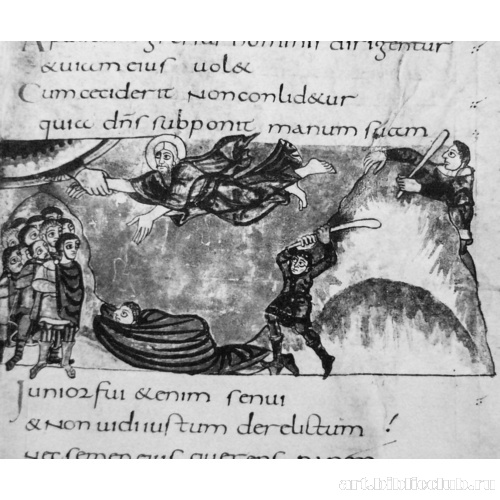 gressus hominis dirigentur
&uiam eius uol&
Cum ceciderit Non conlid&ur
quia dn̄s subponit manum suam
Iunior fui &enim senui
&Non uidi iustum derelictum
Nec semen eius querens panem
art.biblioclub.ru